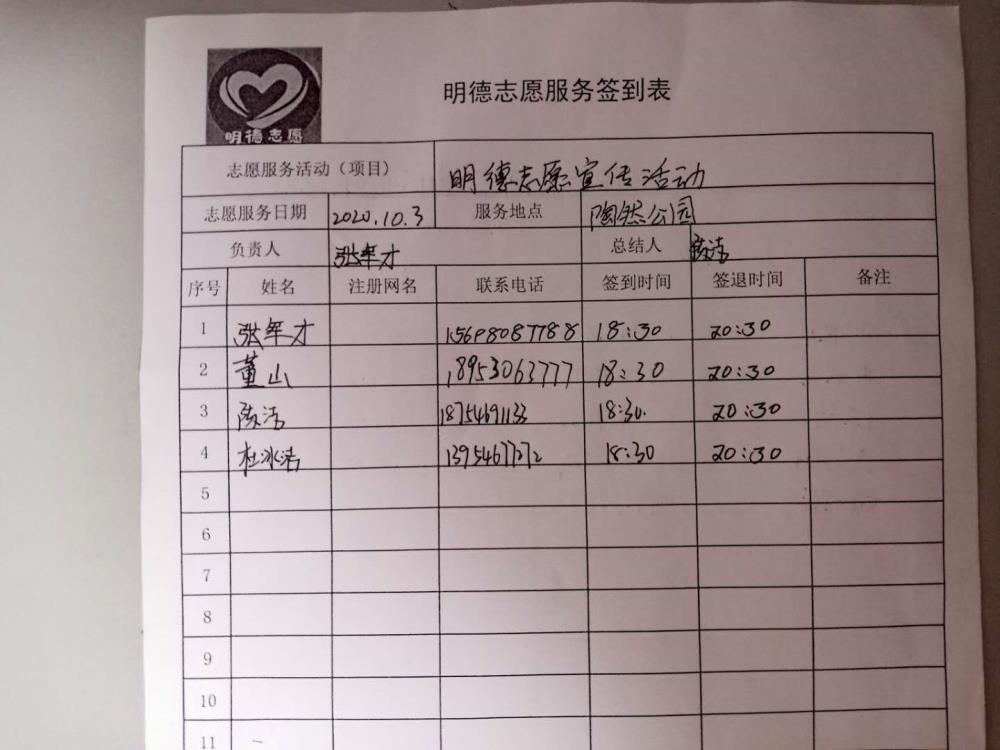 明德志愿
明德志愿服务签到表
志愿服务活动（项目） 明德志愿宣传活动
志愿服务日期 2020.10.3 服务地点 陶然公园
负责人 张军才 总结人 陈洁
序号 姓名 注册网名 联系电话 签到时间 签退时间 备注
1 张军才 15698087788 18:30 20:30
2 董山 18953063777 18:30 20:30
3 陈洁 18754691133 18:30. 20:30
4 杜冰洁 13954677272 18:30 20:30
5
6
7
8
9
10
11